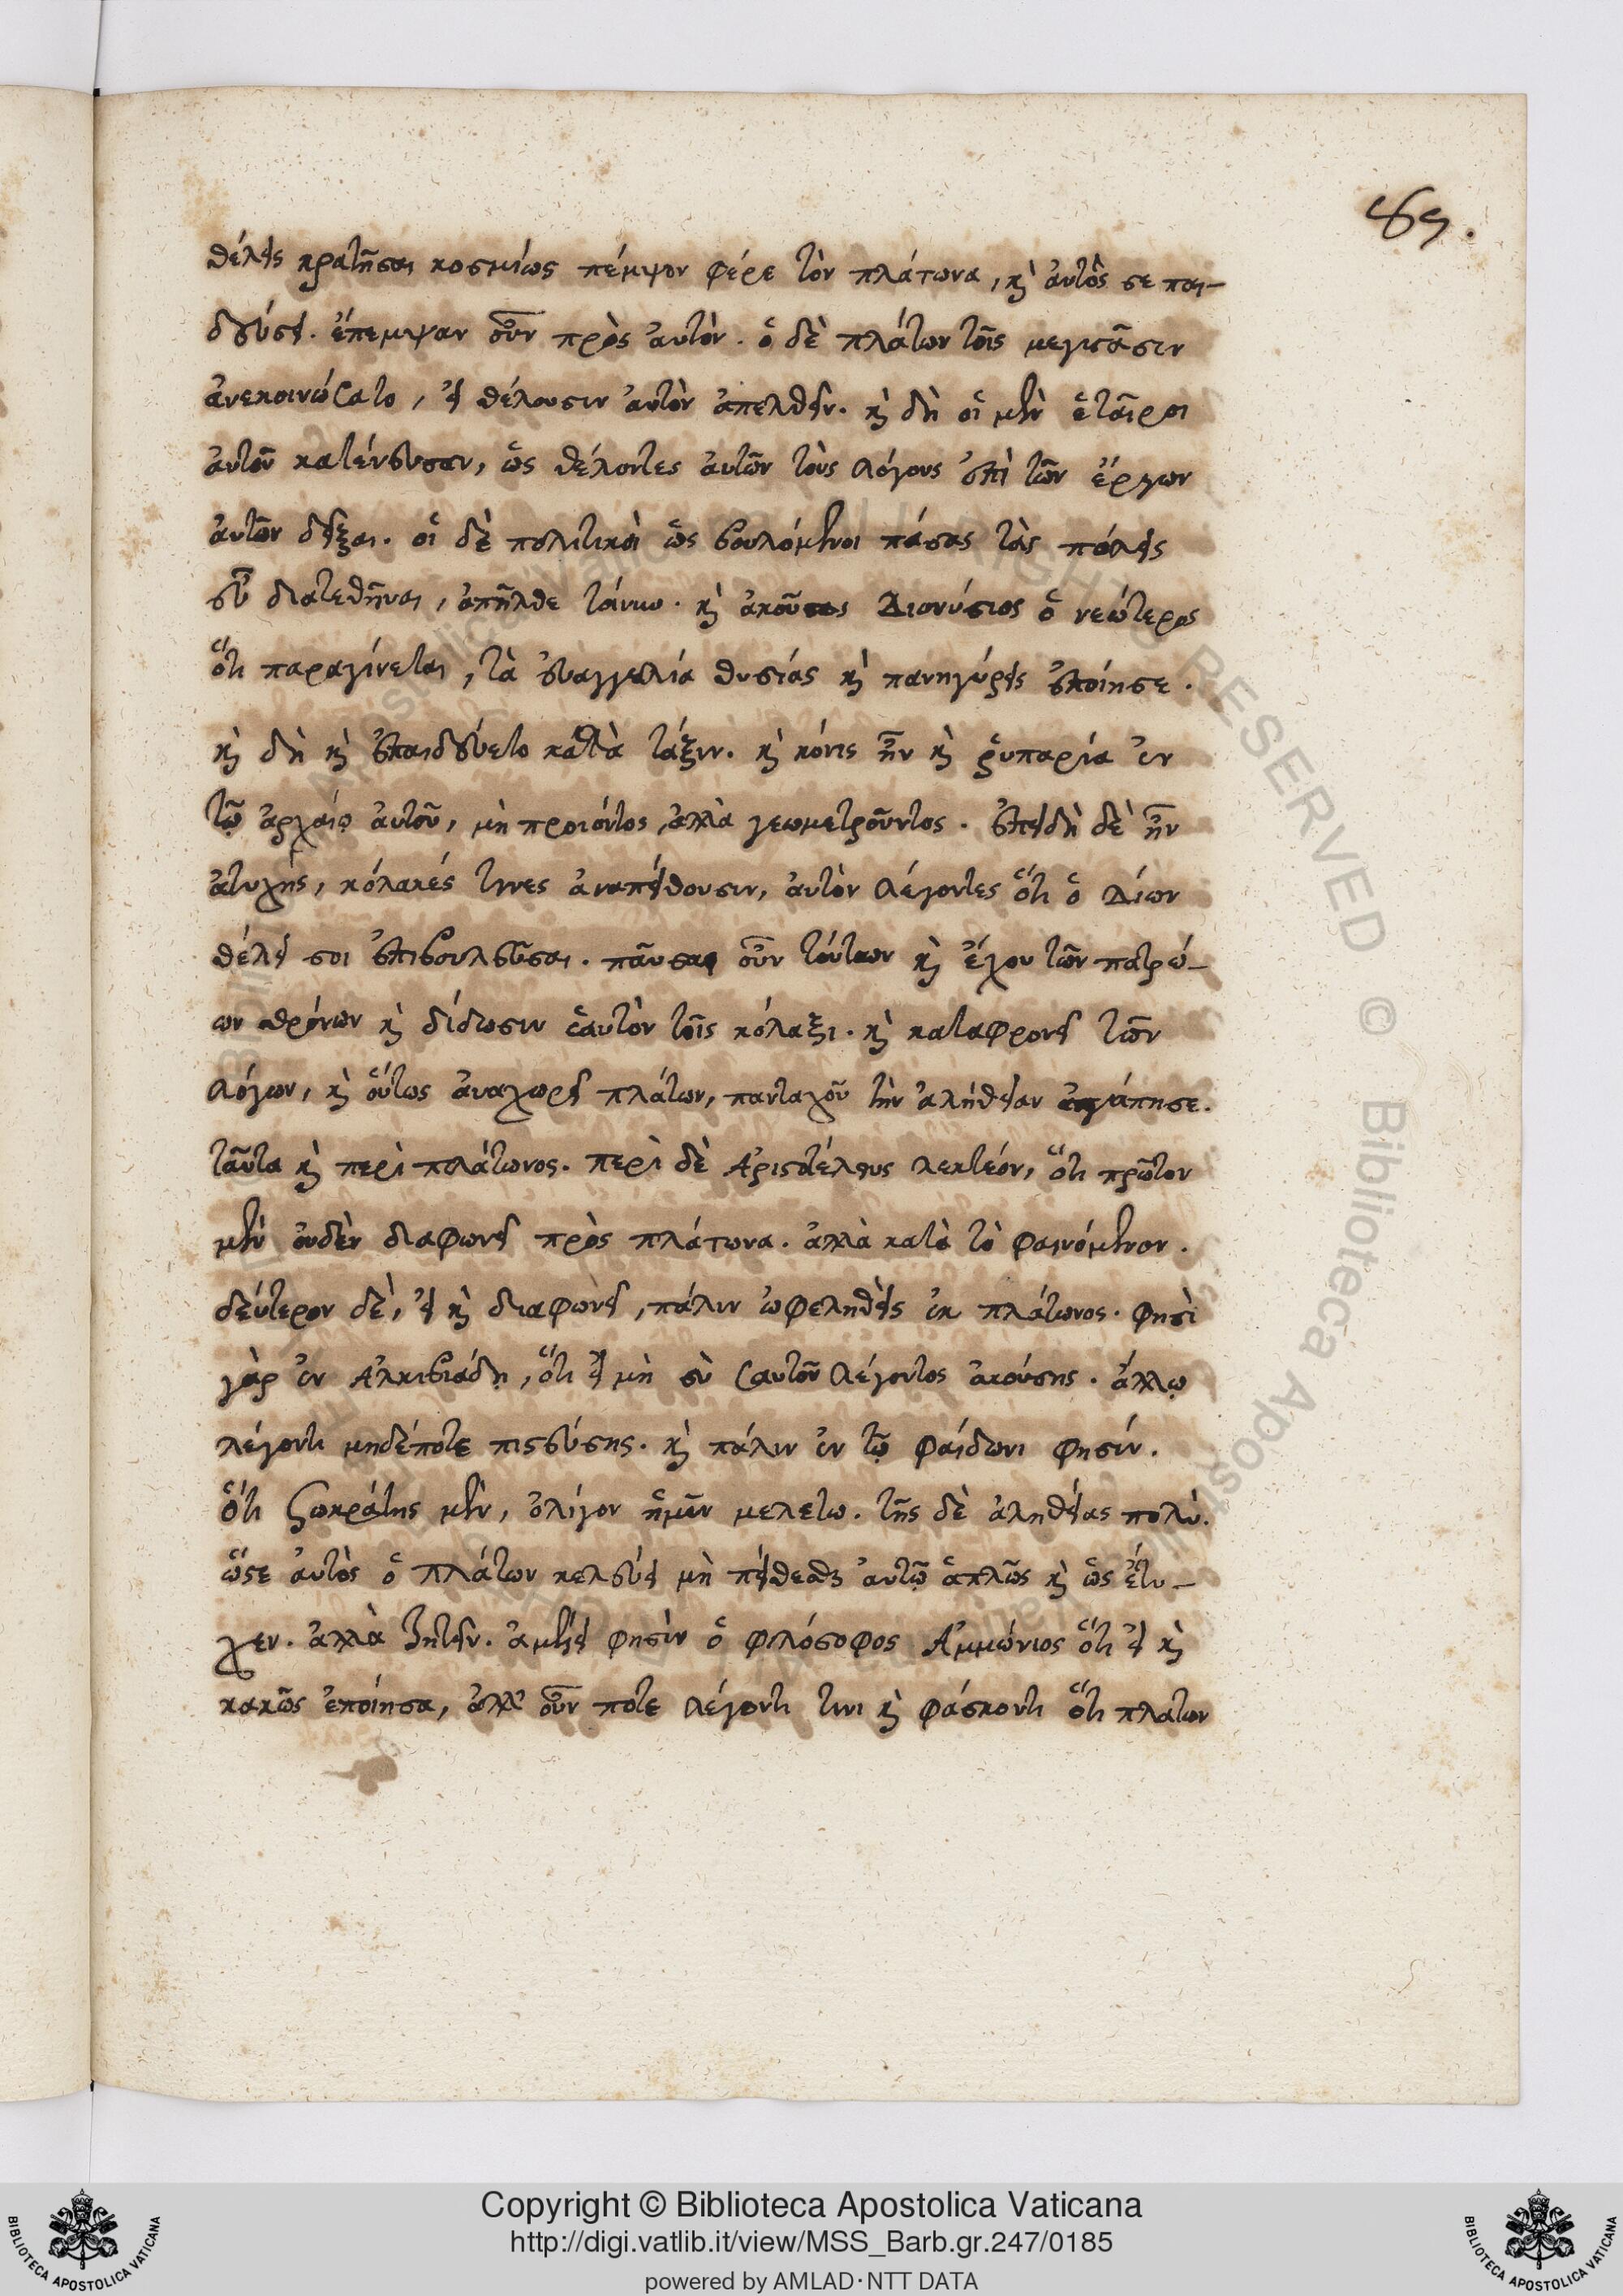 89.
θέλεις κρατῆσαι κοσμίως πέμψον φέρε τὸν πλάτωνα, κὶ αὐτὸς σε παι-
δεύσει. ἔπεμψαν οὖν πρὸς αὐτὸν. ὁ δὲ πλάτων τοῖς μεγιστᾶσιν
ἀνεκοινώσατο, εἰ θέλουσιν αὐτὸν ἀπελθεῖν. κὶ δὴ οἱ μὲν ἑταῖροι
αὐτοῦ κατένευσαν, ὡς θέλοντες αὐτῶν τοὺς λόγους ἐπὶ τῶν ἔργων
αὐτῶν δεῖξαι. οἱ δὲ πολιτικοὶ ὡς βουλόμενοι πάσας τὰς πόλεις
εὖ διατεθῆναι, ἀπῆλθε τοίνυν. κὶ ἀκούσας Διονύσιος ὁ νεώτερος
ὅτι παραγίνεται, τὰ εὐαγγελία θυσίας κὶ πανηγύρεις ἐποίησε.
κὶ δὴ κὶ ἐπαιδεύετο κατὰ τάξιν. κὶ κόνις ἦν κὶ ῥυπαρία ἐν
τῷ ἀρχαίῳ αὐτοῦ, μὴ προϊόντος, ἀλλὰ γεωμετροῦντος. ἐπειδὴ δὲ ἦν
ἀτυχὴς, κόλακές τινες ἀναπείθουσιν, αὐτὸν λέγοντες ὅτι ὁ Δίων
θέλει σοι ἐπιβουλεῦσαι. παῦσαι οὖν τούτων κὶ ἔχου τῶν πατρώ-
ων θρόνων κὶ δίδωσιν ἑαυτὸν τοῖς κόλαξι. κὶ καταφρονεῖ τῶν
λόγων, κὶ οὕτως ἀναχωρεῖ πλάτων, πανταχοῦ τὴν ἀλήθειαν ἀγάπησε.
ταῦτα κὶ περὶ πλάτωνος. περὶ δὲ Ἀριστέλους λεκτέον, ὅτι πρῶτον
μὲν οὐδὲν διαφωνεῖ πρὸς πλάτωνα. ἀλλὰ κατὰ τὸ φαινόμενον.
δεύτερον δὲ, εἰ κὶ διαφωνεῖ, πάλιν ὠφεληθεὶς ἐκ πλάτωνος. φησὶ
γὰρ ἐν Ἀλκιβιάδῃ, ὅτι εἰ μὴ σὺ σαυτοῦ λέγοντος ἀκούσῃς. ἄλλῳ
λέγοντι μηδέποτε πιστεύσῃς. κὶ πάλιν ἐν τῷ φαίδωνι φησίν.
ὅτι Σωκράτης μὲν, ὀλίγον ἡμῖν μελετω. τῆς δὲ ἀληθείας πολύ.
ὥστε αὐτὸς ὁ Πλάτων κελεύει μὴ πείθεσθαι αὐτῷ ἁπλῶς κὶ ὡς ἔτυ-
χεν. ἀλλὰ ζητεῖν. ἀμέλει φησὶν ὁ φιλόσοφος Ἀμμώνιος ὅτι εἰ κὶ
κακῶς ἐποίησα, ἀλλ' οὖν ποτε λέγοντι τινι κὶ φάσκοντι ὅτι πλατων
Copyright © Biblioteca Apostolica Vaticana
http://digi.vatlib.it/view/MSS_Barb.gr.247/0185
powered by AMLAD·NTT DATA